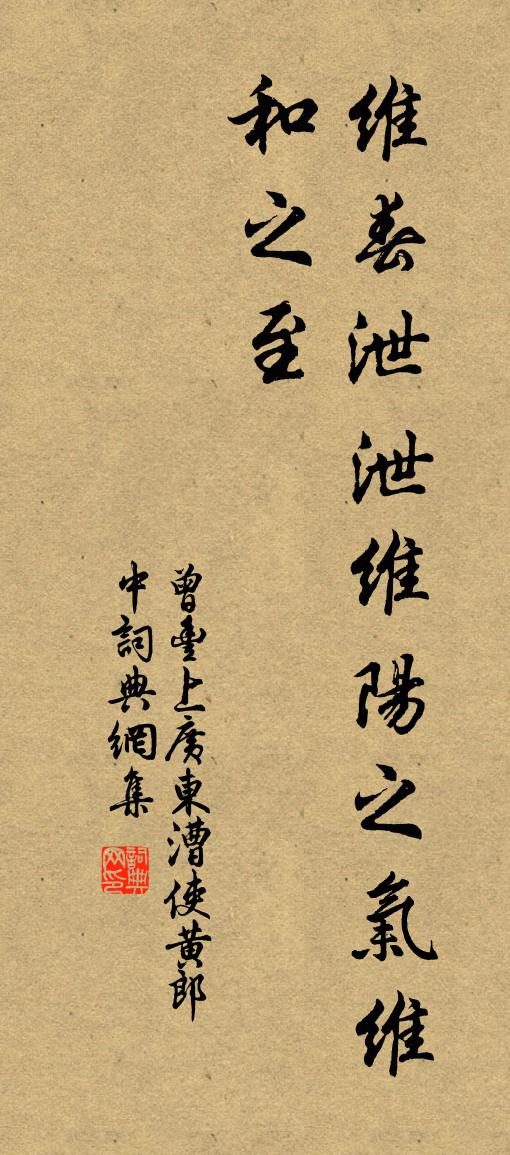 維春泄泄維陽之氣維
和之至
曾豐上廣東漕使黃郎
中詞典網集
詞典
网印